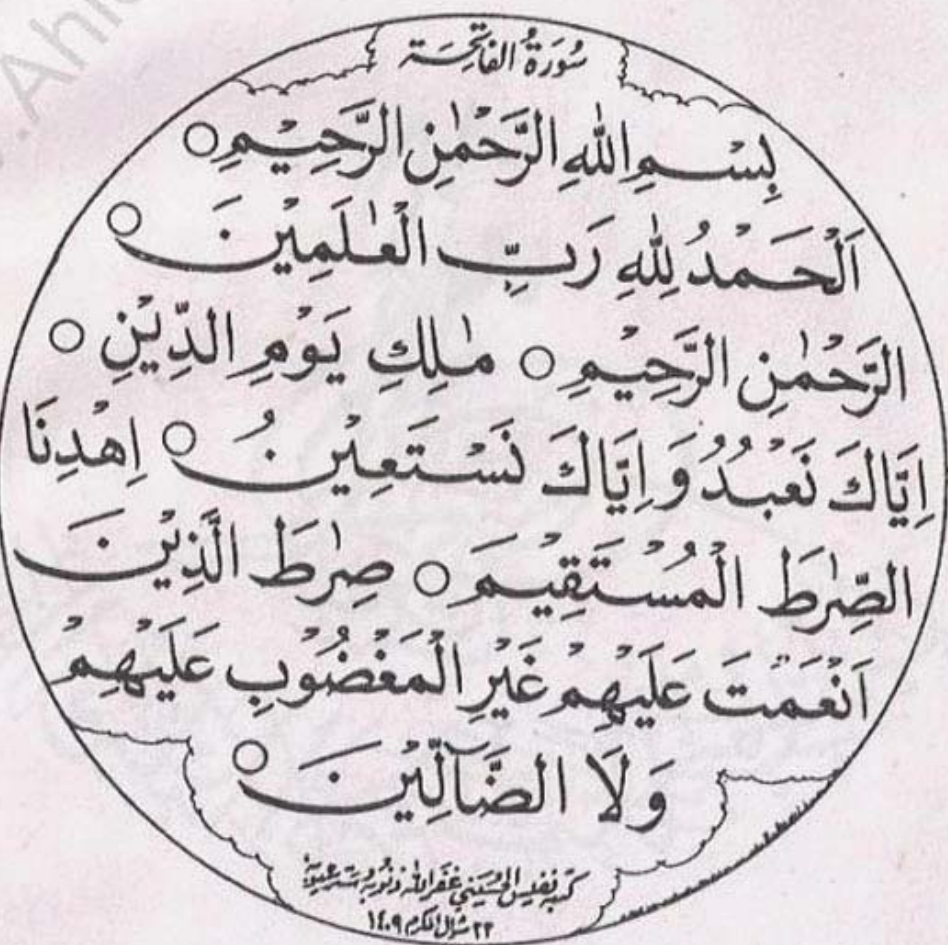 .Ahl
سُورَةُ الفَاتِحَة
بِسْمِ اللهِ الرَّحْمٰنِ الرَّحِيْمِ ○
اَلْحَمْدُ لِلّٰهِ رَبِّ الْعٰلَمِيْنَ ○
الرَّحْمٰنِ الرَّحِيْمِ ○ مٰلِكِ يَوْمِ الدِّيْنِ ○
اِيَّاكَ نَعْبُدُ وَ اِيَّاكَ نَسْتَعِيْنُ ○ اِهْدِنَا
الصِّرٰطَ الْمُسْتَقِيْمَ ○ صِرٰطَ الَّذِيْنَ
اَنْعَمْتَ عَلَيْهِمْ غَيْرِ الْمَغْضُوْبِ عَلَيْهِمْ
وَلَا الضَّآلِّيْنَ ○
كتبه نفيس الحسيني غفر الله ذنوبه وستر عيوبه
٢٢ شوال المكرم ١٤٠٩